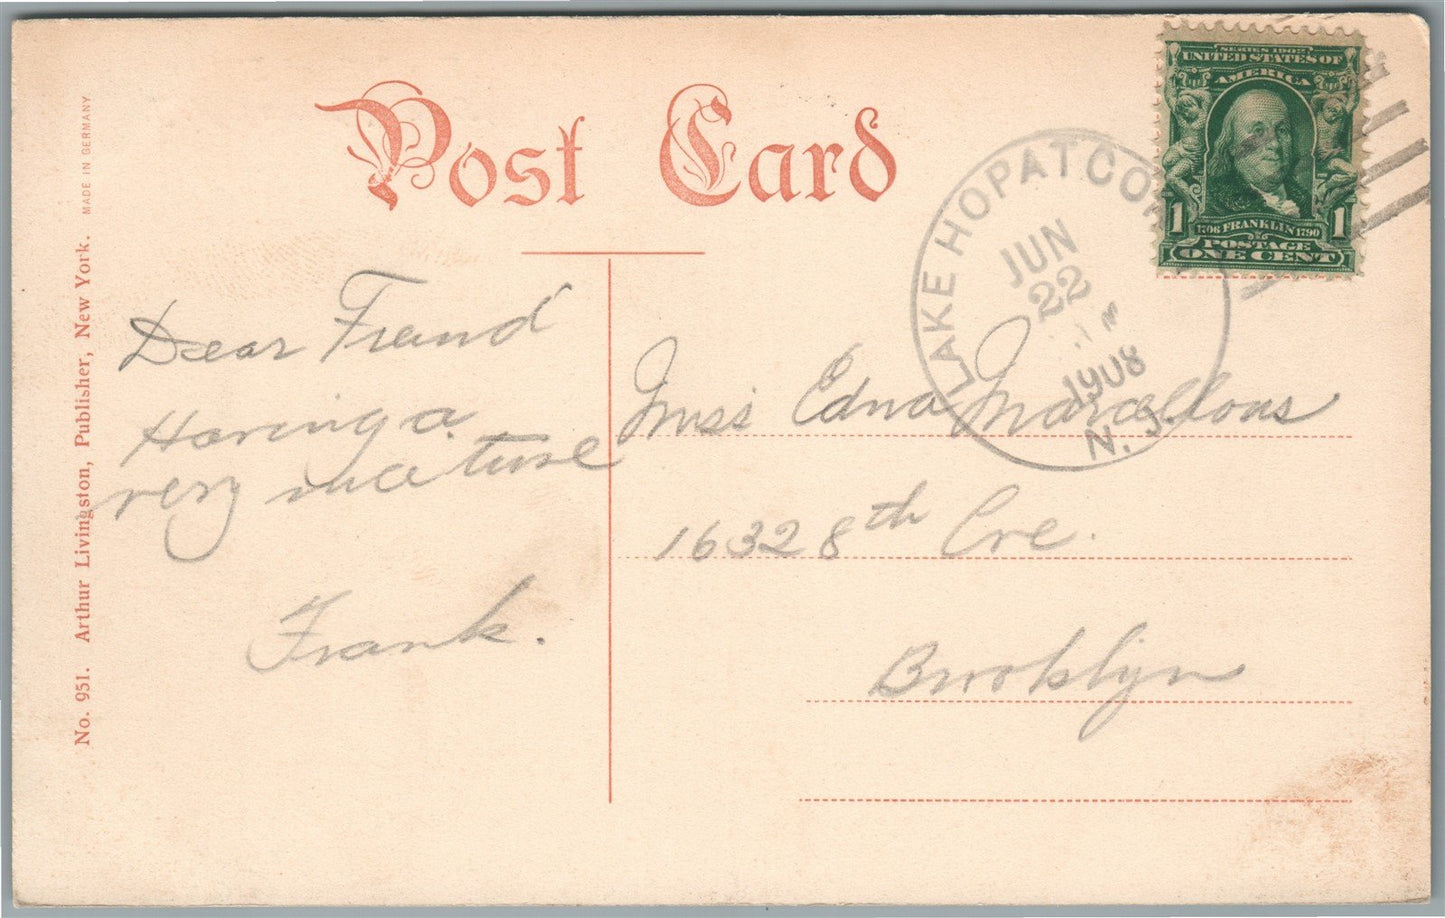 Post Card
SERIES 1902
UNITED STATES OF
AMERICA
1 1706 FRANKLIN 1790 1
POSTAGE
ONE CENT
LAKE HOPATCO
JUN
22
1908
N. J.
Dear Friend
Having a
very nice time
Frank.
Miss Edna
1632 8th Ave.
Brooklyn
No. 951. Arthur Livingston, Publisher, New York. MADE IN GERMANY